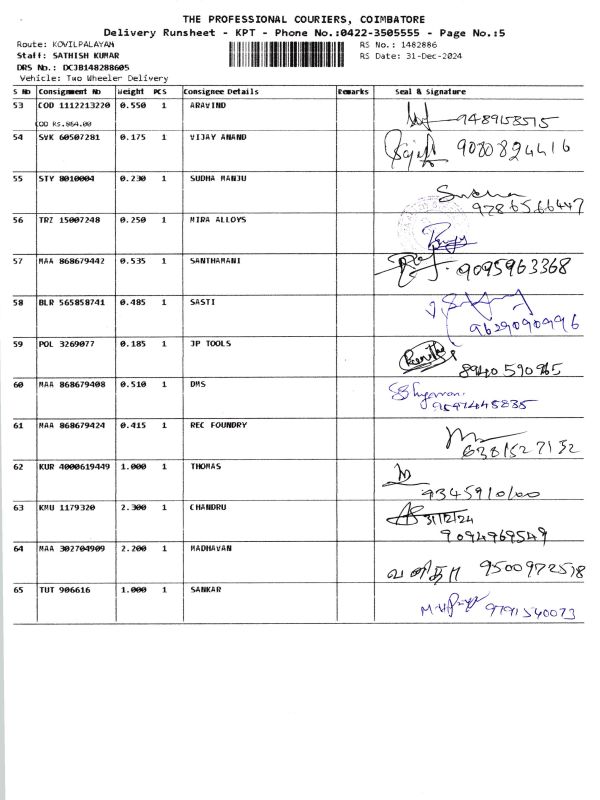 THE PROFESSIONAL COURIERS, COIMBATORE
Delivery Runsheet - KPT - Phone No.:0422-3505555 - Page No.:5
Route: KOVILPALAYAM RS No.: 1482886
Staff: SATHISH KUMAR RS Date: 31-Dec-2024
DRS No.: DCJB148288605
Vehicle: Two Wheeler Delivery
S No Consignment No Weight PCS Consignee Details Remarks Seal & Signature
53 COD 1112213220 0.550 1 ARAVIND 7489158515
COD Rs.864.00
54 SVK 60507281 0.175 1 VIJAY ANAND 9080824416
55 STY 8010004 0.230 1 SUDHA MANJU Sudha
9786566447
56 TRZ 15007248 0.250 1 MIRA ALLOYS
57 MAA 868679442 0.535 1 SANTHAMANI 9095963368
58 BLR 565858741 0.485 1 SASTI
9629090996
59 POL 3269077 0.185 1 JP TOOLS
8940590965
60 MAA 868679408 0.510 1 DMS
9597445835
61 MAA 868679424 0.415 1 REC FOUNDRY
6381527132
62 KUR 4000619449 1.000 1 THOMAS
9345910100
63 KMU 1179320 2.300 1 CHANDRU 31/12/24
9094969549
64 MAA 302704909 2.200 1 MADHAVAN வனிதா 9500972518
65 TUT 906616 1.000 1 SANKAR 9791540073